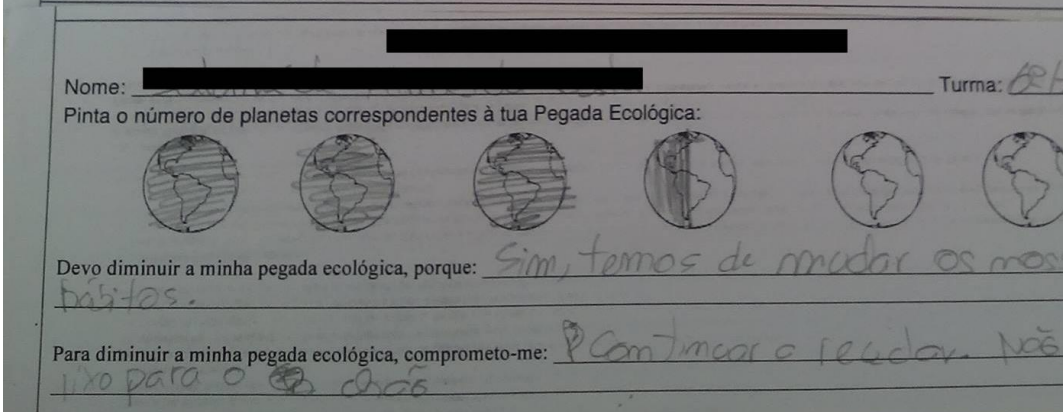 Nome:
Turma: 6º
Pinta o número de planetas correspondentes à tua Pegada Ecológica:
Devo diminuir a minha pegada ecológica, porque: Sim, temos de mudar os nos
hábitos.
Para diminuir a minha pegada ecológica, comprometo-me: Continuar a reciclar. Não
lixo para o chão